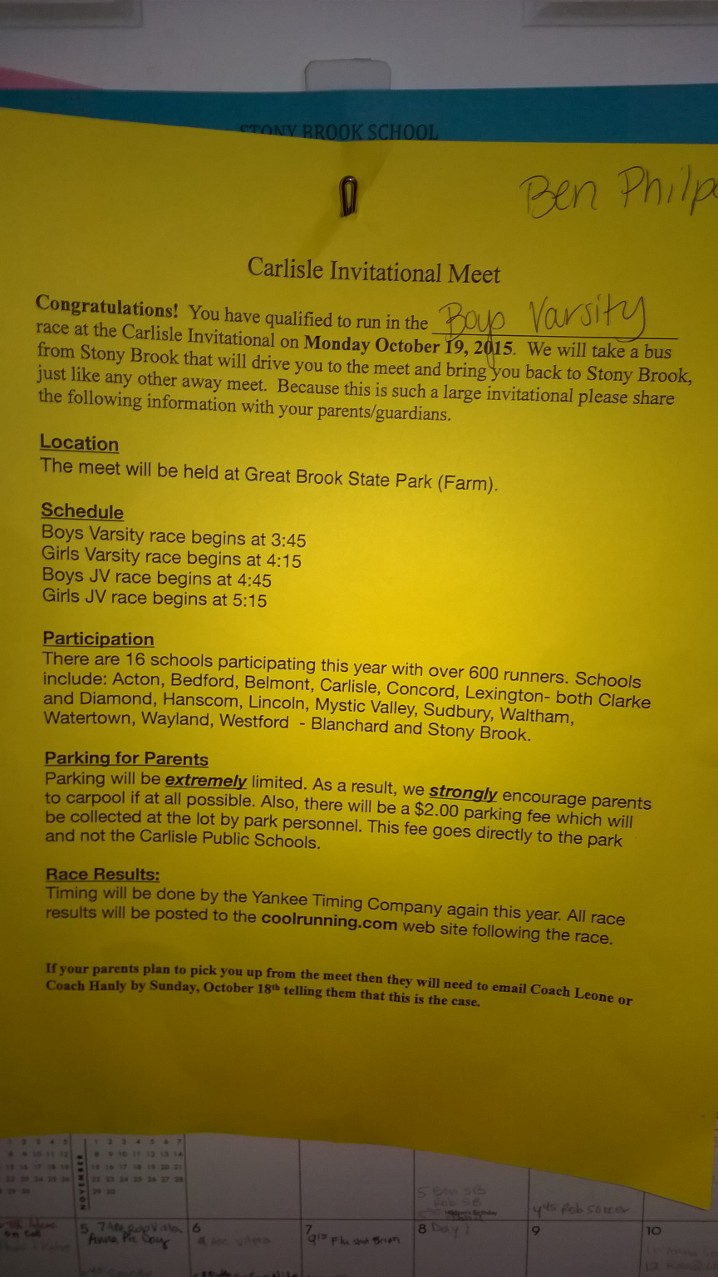 STONY BROOK SCHOOL
Ben Philp
Carlisle Invitational Meet
Congratulations! You have qualified to run in the Boys Varsity
race at the Carlisle Invitational on Monday October 19, 2015. We will take a bus
from Stony Brook that will drive you to the meet and bring you back to Stony Brook,
just like any other away meet. Because this is such a large invitational please share
the following information with your parents/guardians.
Location
The meet will be held at Great Brook State Park (Farm).
Schedule
Boys Varsity race begins at 3:45
Girls Varsity race begins at 4:15
Boys JV race begins at 4:45
Girls JV race begins at 5:15
Participation
There are 16 schools participating this year with over 600 runners. Schools
include: Acton, Bedford, Belmont, Carlisle, Concord, Lexington- both Clarke
and Diamond, Hanscom, Lincoln, Mystic Valley, Sudbury, Waltham,
Watertown, Wayland, Westford - Blanchard and Stony Brook.
Parking for Parents
Parking will be extremely limited. As a result, we strongly encourage parents
to carpool if at all possible. Also, there will be a $2.00 parking fee which will
be collected at the lot by park personnel. This fee goes directly to the park
and not the Carlisle Public Schools.
Race Results:
Timing will be done by the Yankee Timing Company again this year. All race
results will be posted to the coolrunning.com web site following the race.
If your parents plan to pick you up from the meet then they will need to email Coach Leone or
Coach Hanly by Sunday, October 18th telling them that this is the case.
NOVEMBER
4:45 Rob Soccer
5
6
7
8 Day 1
9
10